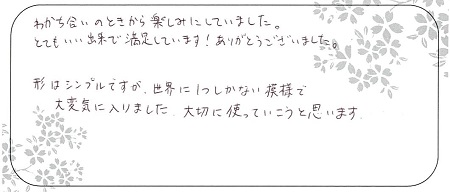 わかち合いのときから楽しみにしていました。
とてもいい出来で満足しています！ありがとうございました。
形はシンプルですが、世界に1つしかない模様で
大変気に入りました。大切に使っていこうと思います。